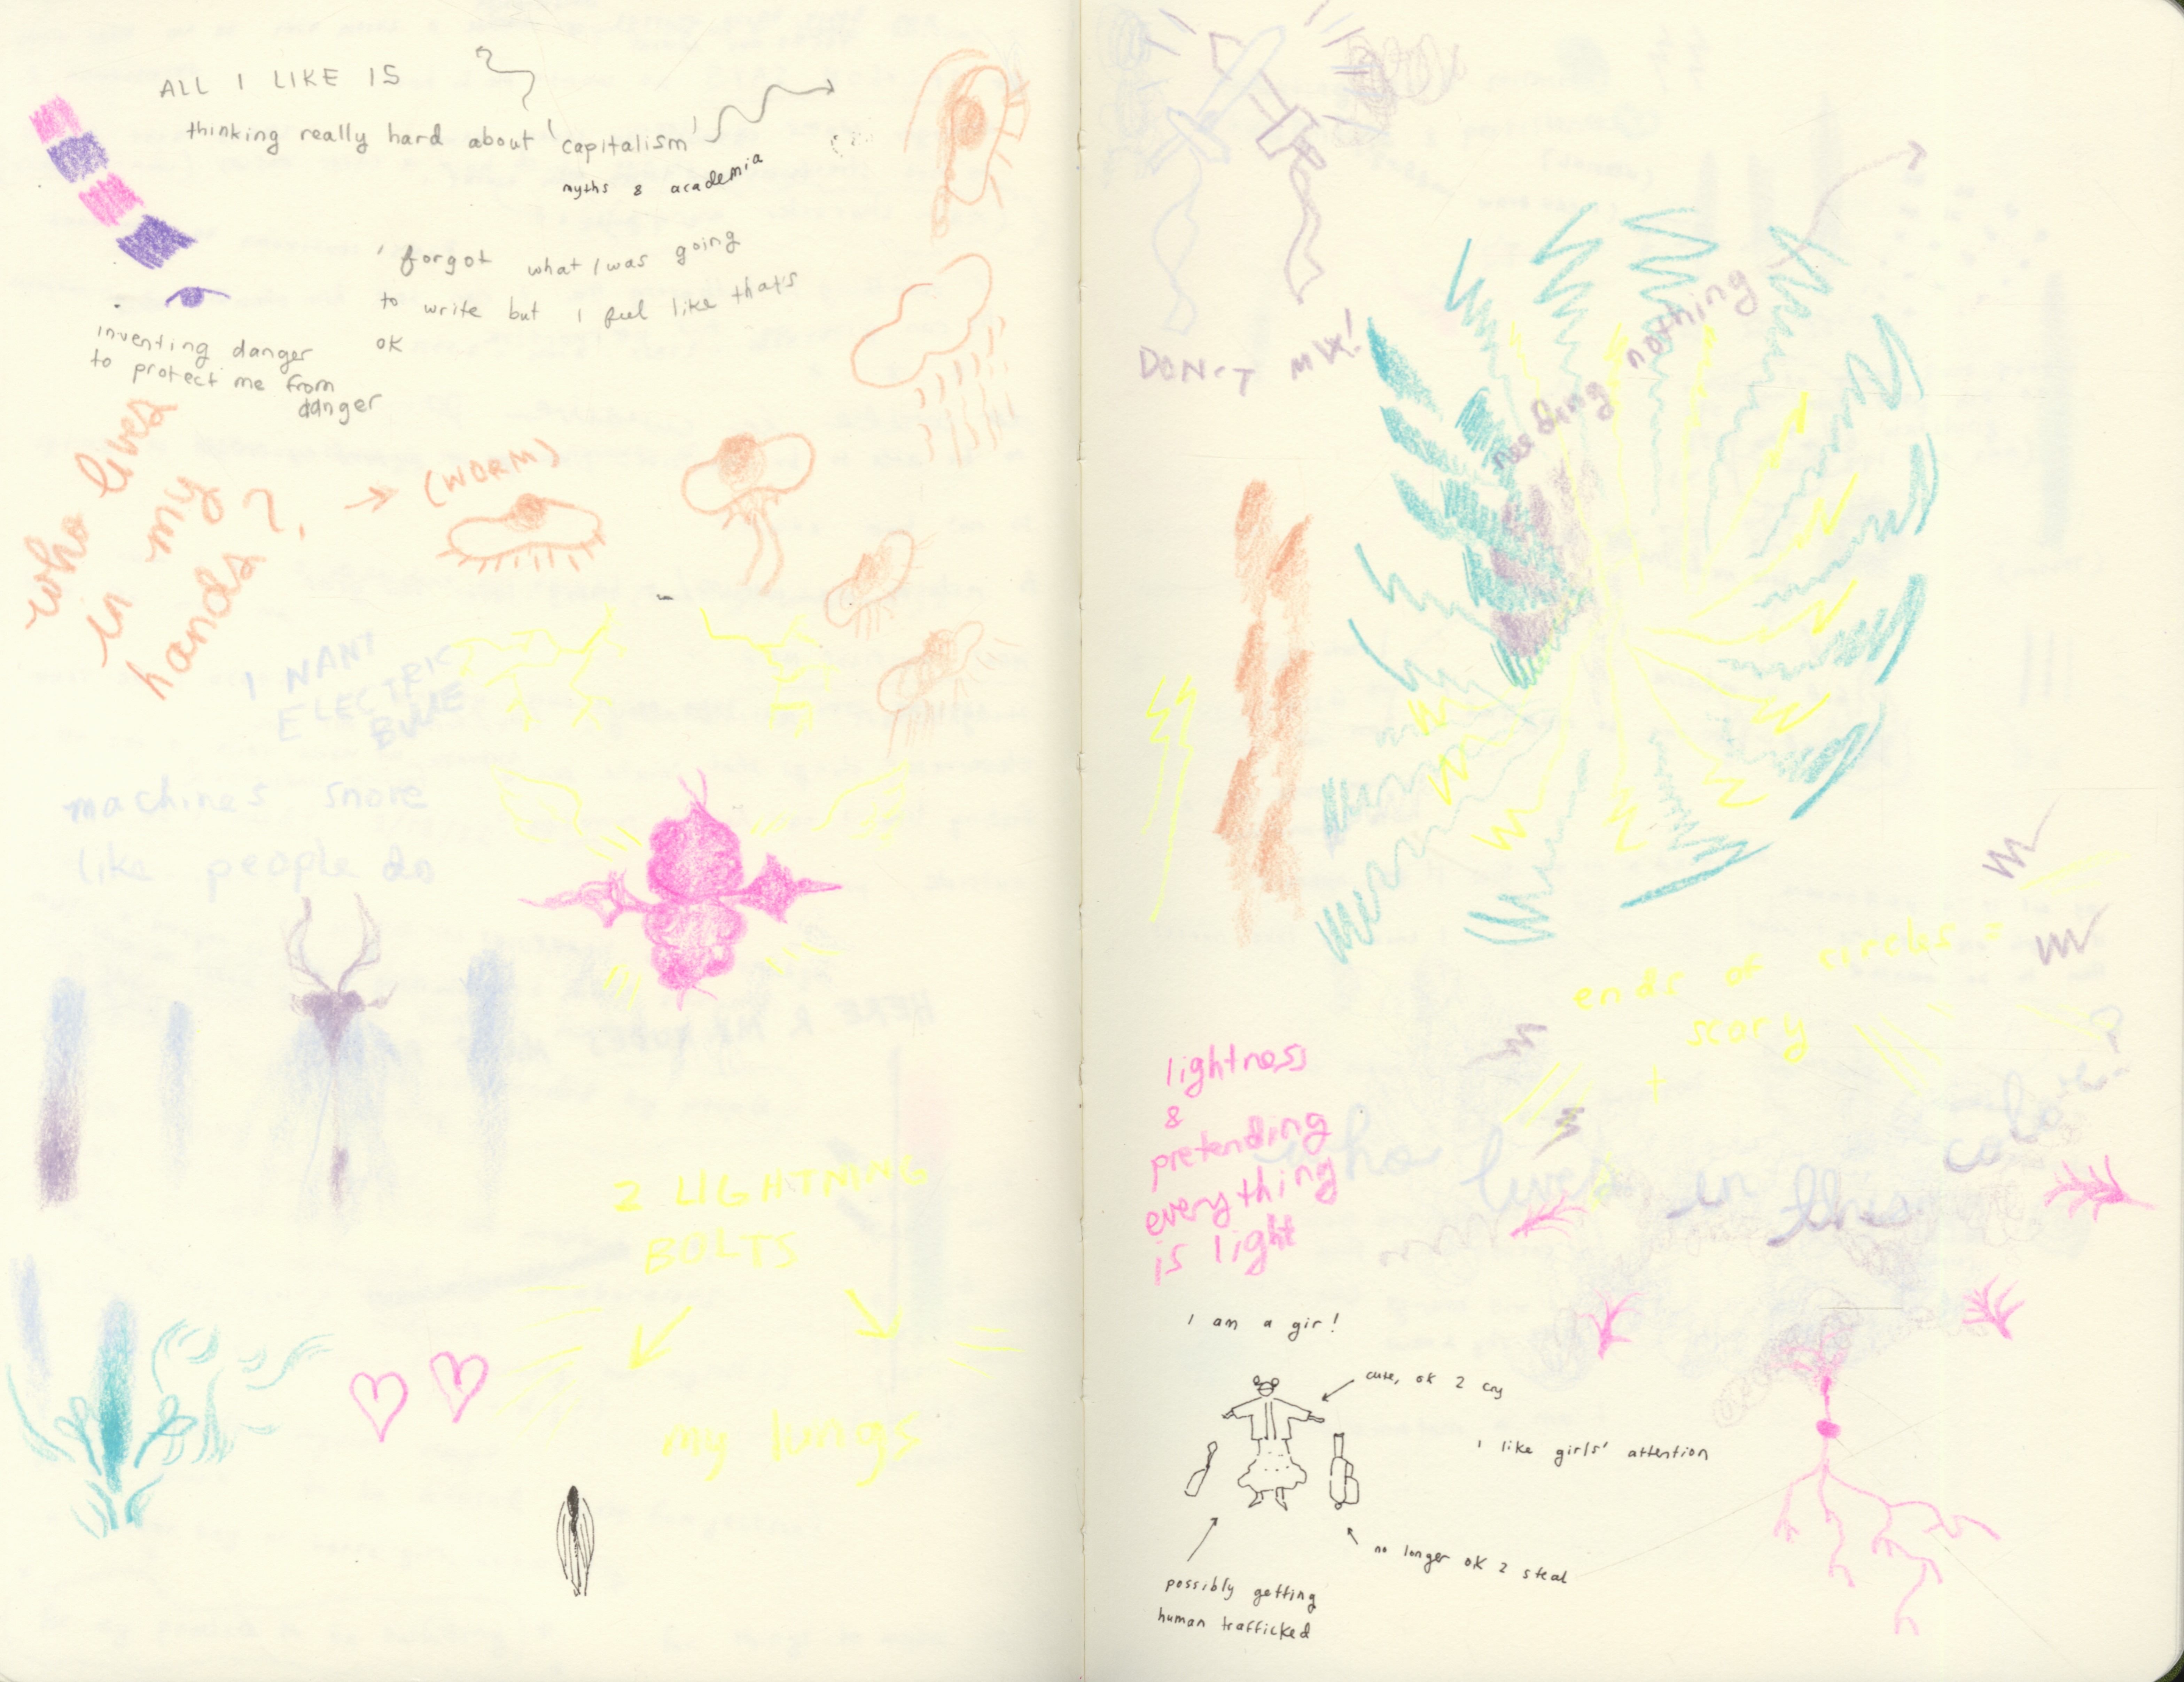 ALL I LIKE IS
thinking really hard about 'capitalism'
myths & academia
I forgot what I was going
to write but I feel like thats
ok
inventing danger
to protect me from
danger
who lives
in my
hands?
(WORM)
I WANT
ELECTRIC
BLUE
machines snore
like people do
2 LIGHTNING
BOLTS
my lungs
DON'T MIX!
needing nothing
ends of circles =
scary
+
lightness
&
pretending
everything
is light
who lives in this
I am a girl
cute, ok 2 cry
I like girls' attention
no longer ok 2 steal
possibly getting
human trafficked